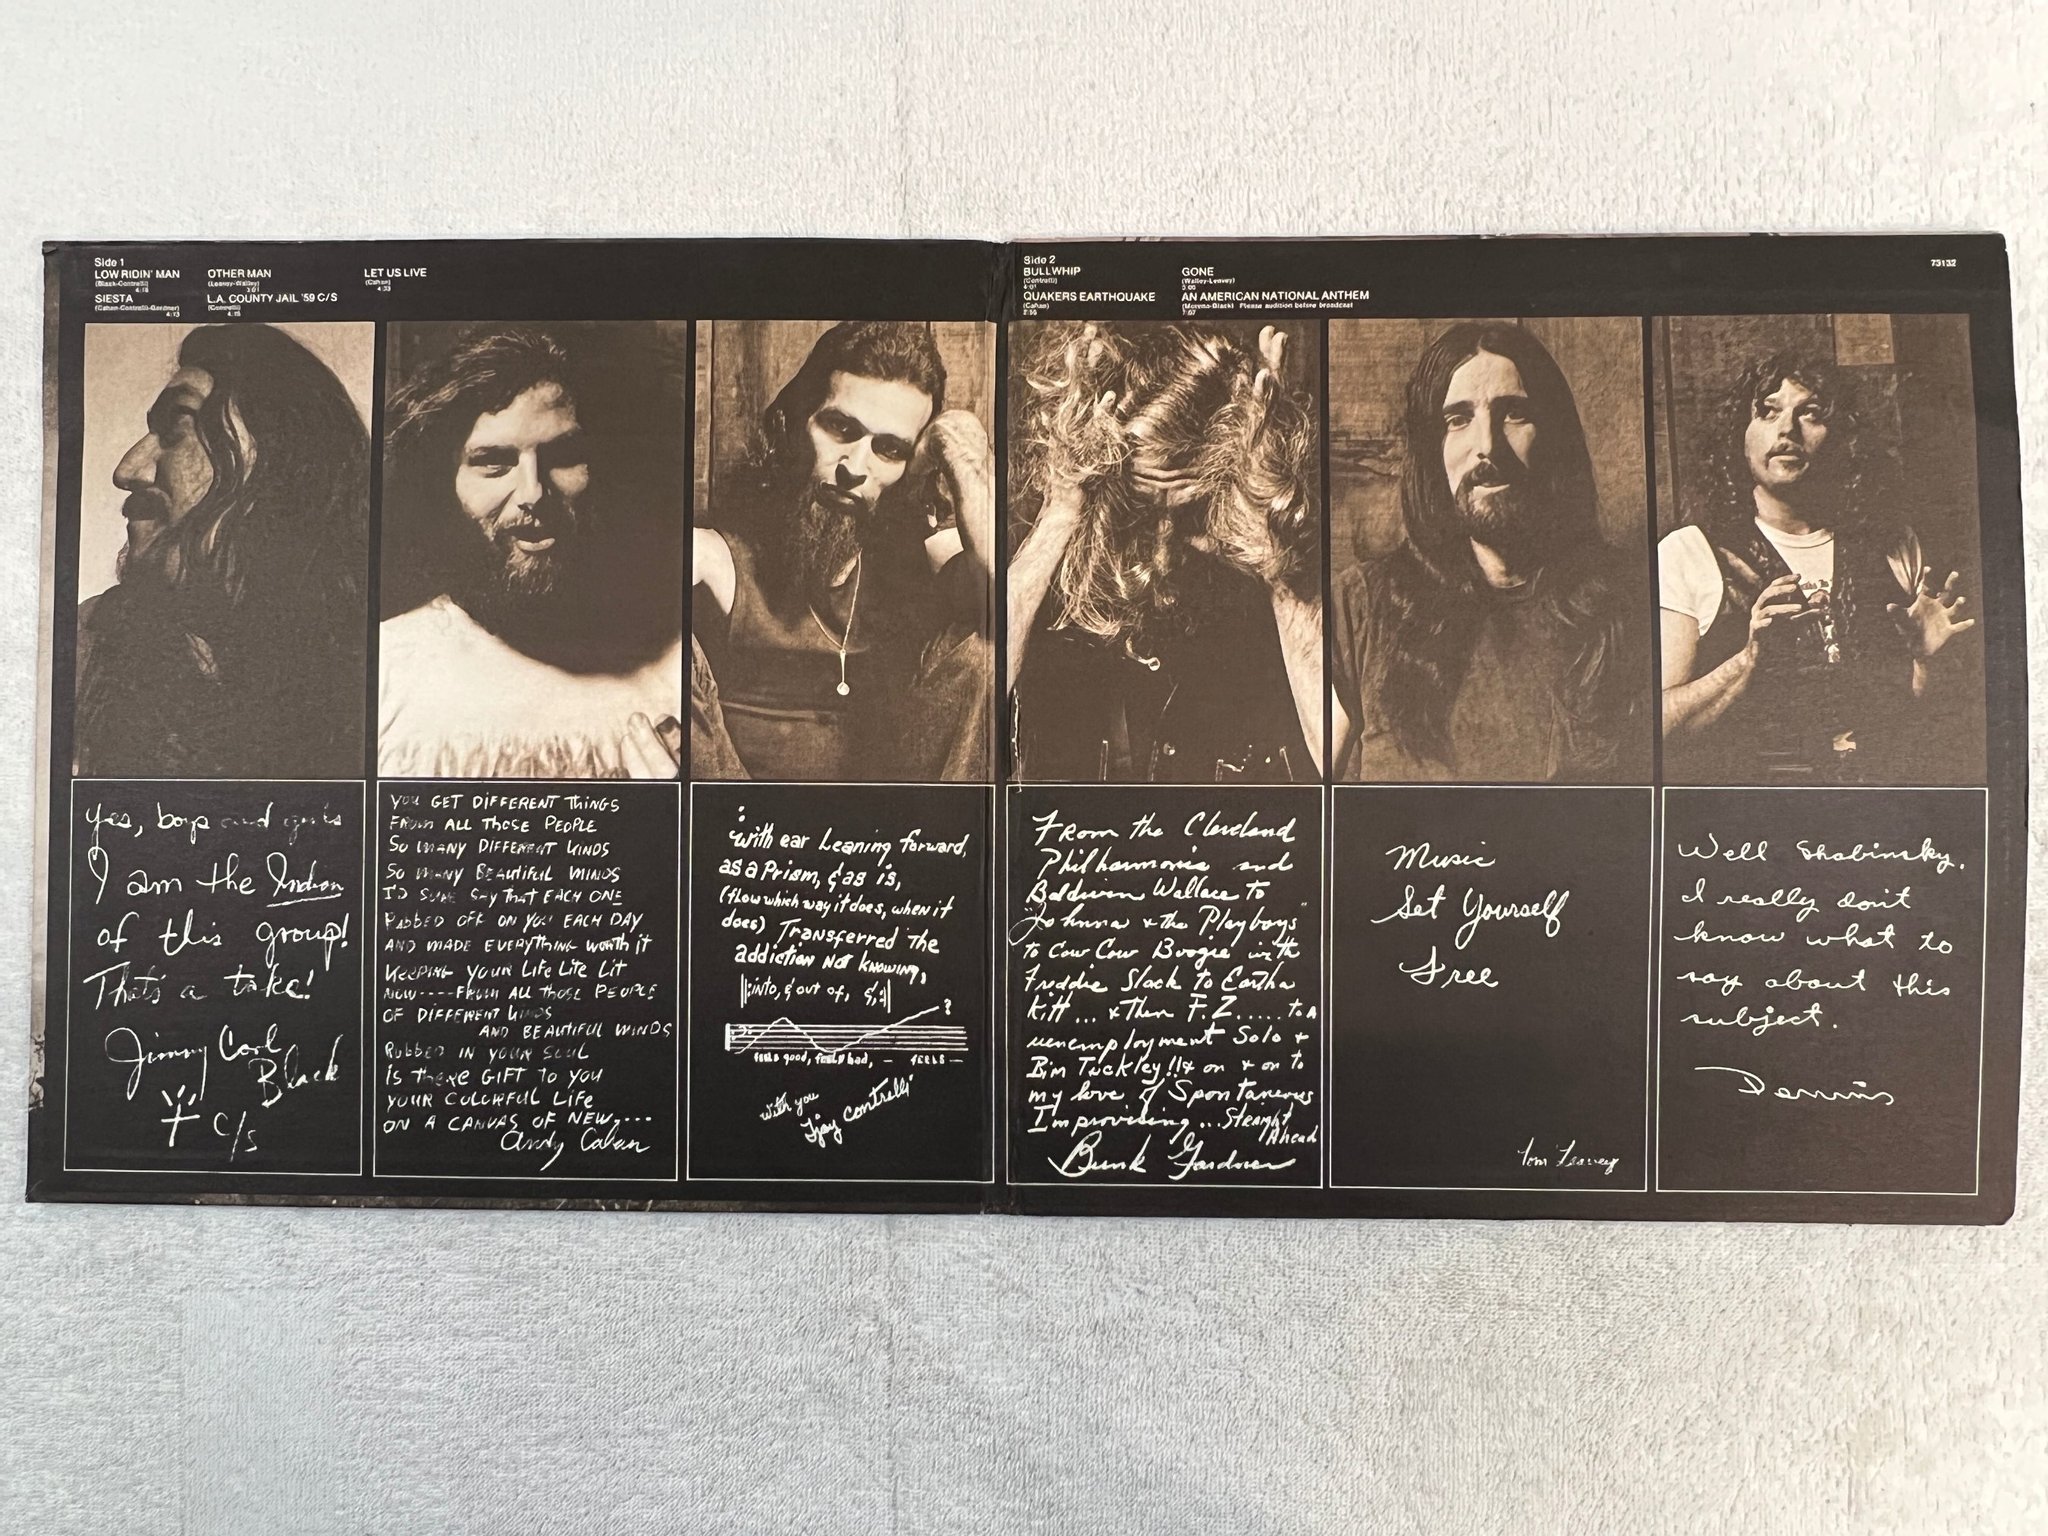 Side 1
LOW RIDIN' MAN
(Black-Contrelli)
4:18
SIESTA
(Cahan-Contrelli-Gardner)
4:13
OTHER MAN
(Leavey-Walley)
3:01
L.A. COUNTY JAIL '59 C/S
(Contrelli)
4:15
LET US LIVE
(Cahan)
4:33
Side 2
BULLWHIP
(Contrelli)
4:01
QUAKERS EARTHQUAKE
(Cahan)
2:50
GONE
(Walley-Leavey)
AN AMERICAN NATIONAL ANTHEM
(Moreno-Black) Please audition before broadcast
7:07
73132
Yes, boys and girls
I am the Indian
of this group!
That's a take!
Jimmy Carl
Black
C/S
YOU GET DIFFERENT THINGS
FROM ALL THOSE PEOPLE
SO MANY DIFFERENT KINDS
SO MANY BEAUTIFUL MINDS
I'D SURE SAY THAT EACH ONE
RUBBED OFF ON YOU EACH DAY
AND MADE EVERYTHING WORTH IT
KEEPING YOUR LIFE LITE LIT
NOW----FROM ALL THOSE PEOPLE
OF DIFFERENT KINDS
AND BEAUTIFUL MINDS
RUBBED IN YOUR SOUL
IS THERE GIFT TO YOU
YOUR COLORFUL LIFE
ON A CANVAS OF NEW,---
Andy Cahan
with ear Leaning forward,
as a Prism, & as is,
(flow which way it does, when it
does) Transferred The
addiction NOT KNOWING,
into, & out of, &,
?
feels good, feels bad, — FEELS —
with you
Tjay Contrelli
From the Cleveland
Philharmonic and
Baldwin Wallace to
"Johnna & the Playboys"
to Cow Cow Boogie with
Freddie Slack to Eartha
Kitt... & Then F.Z..... to a
unemployment Solo &
Tuckley!! & on & on to
my love of Spontaneous
Improvising... Straight
Ahead
Bunk Gardner
Music
Set Yourself
Free
Tom Leavey
Well Shabinsky.
I really don't
know what to
say about this
subject.
Dennis